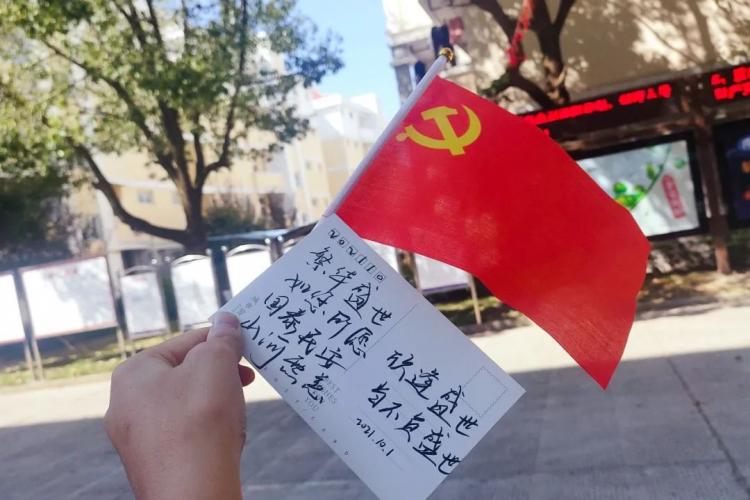 繁华盛世
如您所愿
国泰民安
山河无恙
欣逢盛世
自不负盛世
2021.10.1